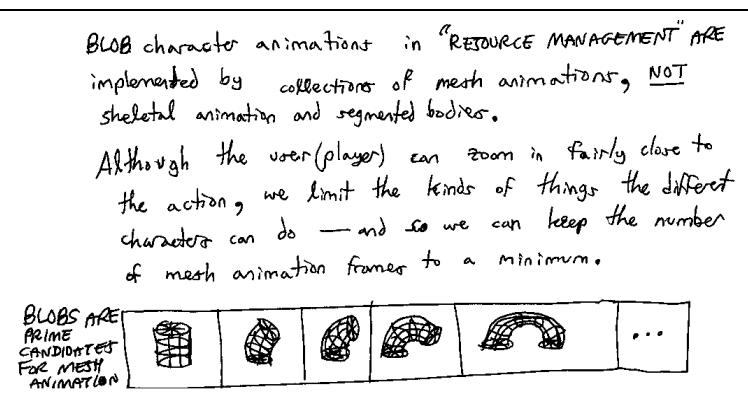 BLOB character animations in "RESOURCE MANAGEMENT" ARE
implemented by collections of mesh animations, NOT
skeletal animation and segmented bodies.
Although the user (player) can zoom in fairly close to
the action, we limit the kinds of things the different
characters can do — and so we can keep the number
of mesh animation frames to a minimum.
BLOBS ARE
PRIME
CANDIDATES
FOR MESH
ANIMATION
...